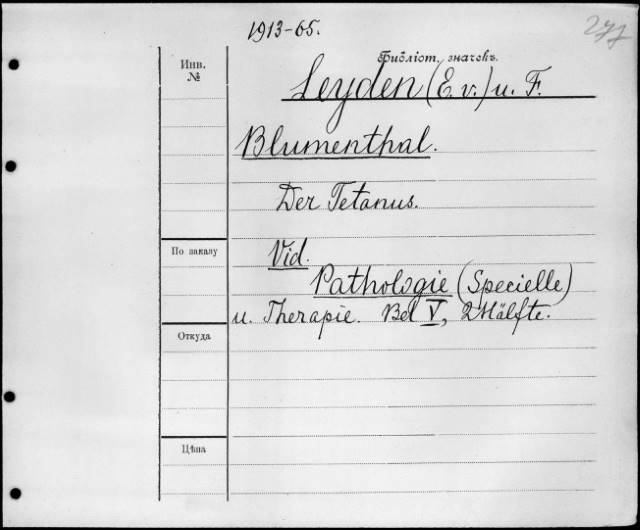 1913-65.
277
Инв.
№
Библіот. значекъ.
Leyden (E. v.) u. F.
Blumenthal.
Der Tetanus.
По заказу
Vid.
Pathologie (Specielle)
u. Therapie. Bd V, 2 Hälfte.
Откуда
Цѣна